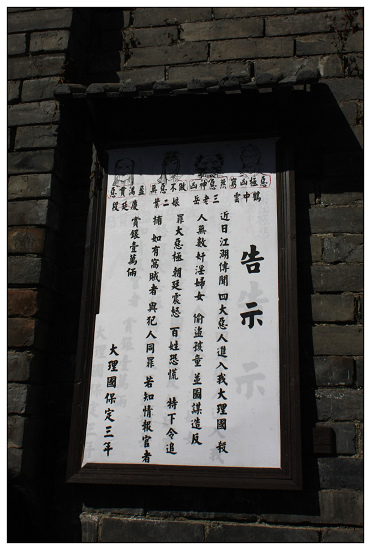 告示
惡貫滿盈 無惡不做 凶神惡煞 窮凶極惡
段延慶 葉二娘 岳老三 雲中鶴
近日江湖傳聞 四大惡人進入我大理國 殺
人無數奸淫婦女 偷盜孩童並圖謀造反
罪大惡極 朝廷震怒 百姓恐慌 特下令追
捕 如有窩賊者 與犯人同罪 若知情報官者
賞銀壹萬倆
大理國保定三年